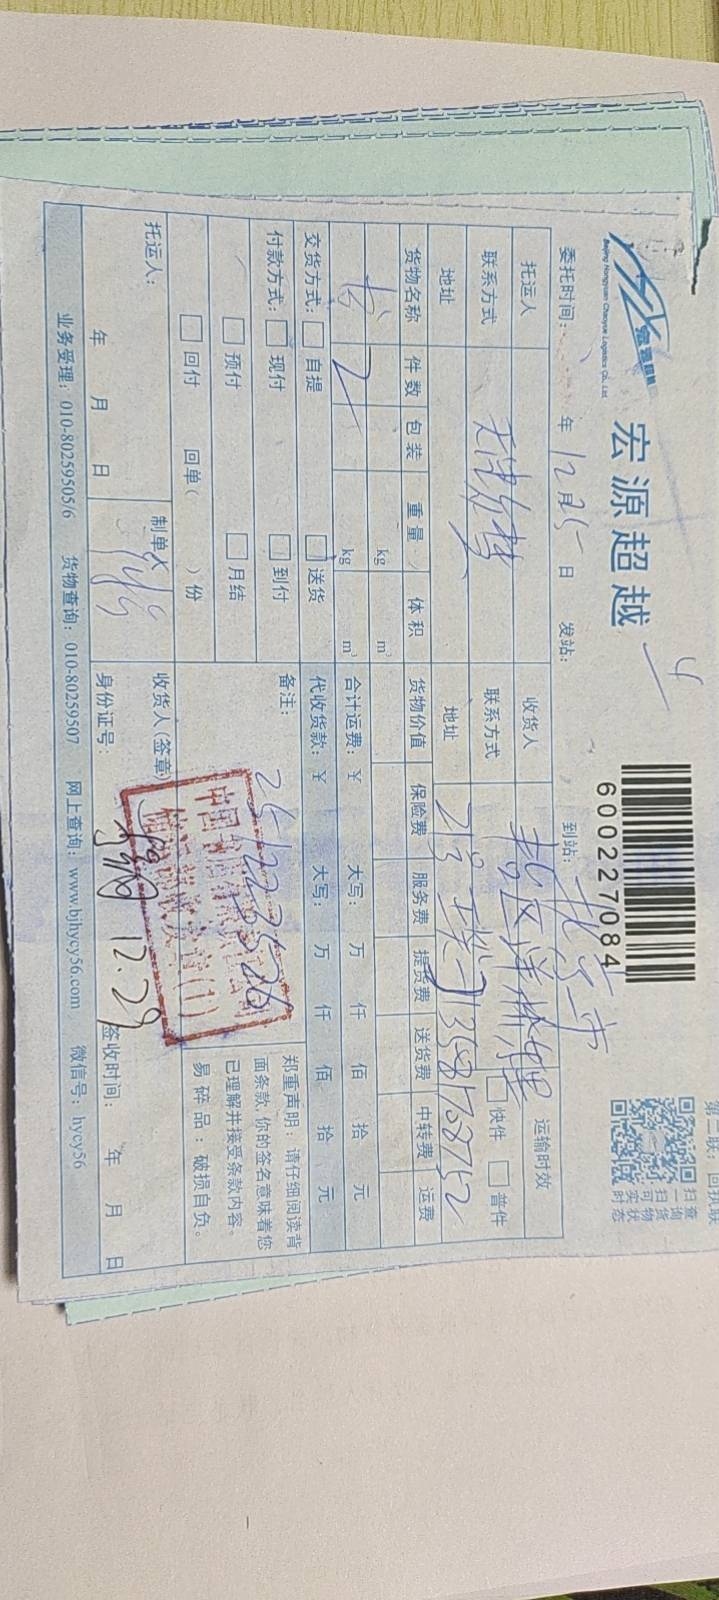 宏源超越
Beijing Hongyuan Chaoyue Logistics Co., Ltd.
600227084
第二联：回执联
扫一扫 查询货物实时状态
委托时间： 年 12月25日 发站： 到站：北京市
托运人 收货人 运输时效
联系方式 联系方式 快件 普件
地址 地址 13581708752
货物名称 件数 包装 重量 体积 货物价值 保险费 服务费 提货费 送货费 中转费 运费
kg m³
2 kg m³ 合计运费：￥ 大写： 万 仟 佰 拾 元
交货方式： 自提 送货 代收货款：￥ 大写： 万 仟 佰 拾 元
付款方式： 现付 到付 备注：
预付 月结
回付 回单（ ）份
郑重声明：请仔细阅读背面条款，你的签名意味着您已理解并接受条款内容。
易碎品：破损自负。
托运人： 制单人 收货人(签章)
年 月 日 身份证号： 12.29 签收时间： 年 月 日
业务受理：010-80259505/6 货物查询：010-80259507 网上查询：www.bjhycy56.com 微信号：hycy56